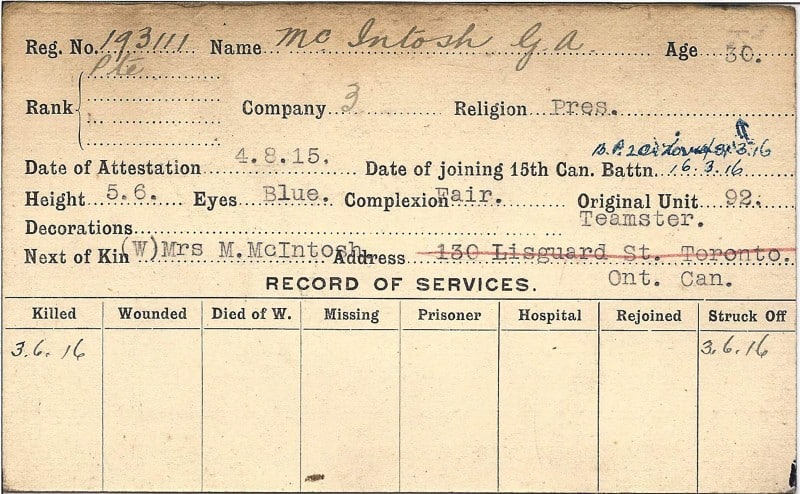 Reg. No. 193111 Name Mc Intosh G A Age 30.
Pte
Rank Company 3 Religion Pres.
3.16
Date of Attestation 4.8.15. Date of joining 15th Can. Battn. 16.3.16
Height 5.6. Eyes Blue. Complexion Fair. Original Unit 92.
Decorations Teamster.
Next of Kin (W)Mrs M.McIntosh. Address 130 Lisguard St. Toronto.
Ont. Can.
RECORD OF SERVICES.
Killed Wounded Died of W. Missing Prisoner Hospital Rejoined Struck Off
3.6.16 3.6.16